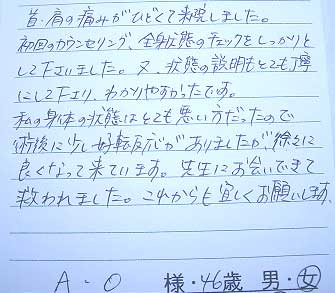 首・肩の痛みがひどくて来院しました。
初回のカウンセリング、全身状態のチェックをしっかりと
して下さいました。又、状態の説明もとても丁寧
にして下さり、わかりやすかったです。
私の身体の状態はとても悪い方だったので
術後に少し好転反応がありましたが、徐々に
良くなって来ています。先生にお会いできて
救われました。これからも宜しくお願いします。
A・O 様・46歳 男・女